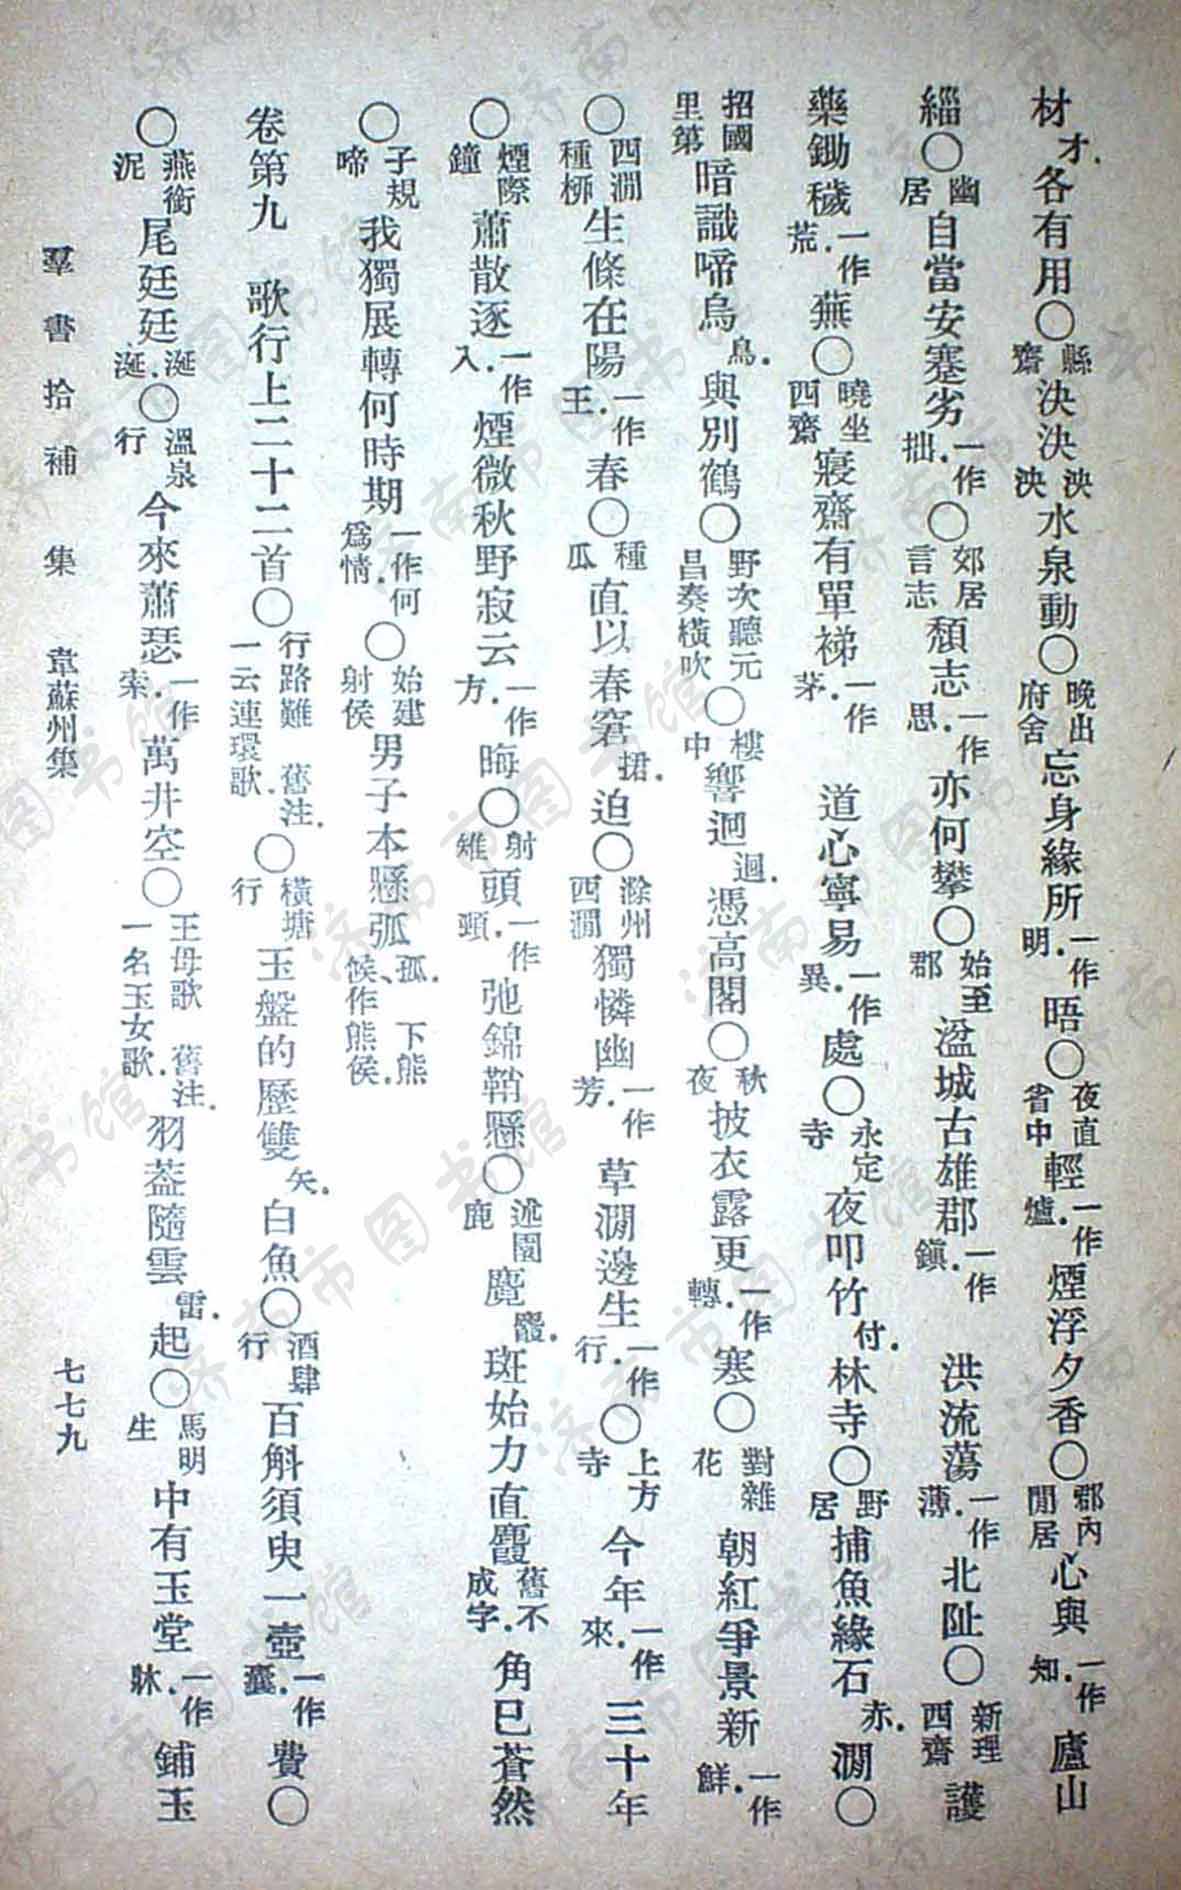 材才．各有用○縣齋決決泱泱水泉動○晚出府舍忘身緣所一作明．晤○夜直省中輕一作爐．煙浮夕香○郡內閒居心與一作知．廬山
緇○幽居自當安蹇劣一作拙．○郊居言志頹志一作思．亦何攀○始至郡湓城古雄郡一作鎭．洪流蕩一作薄．北阯○新理西齋護
藥鋤穢一作荒．蕪○曉坐西齋寢齋有單䄺一作茅．道心寧易一作異．處○永定寺夜叩竹付．林寺○野居捕魚緣石赤．澗○
招國里第暗識啼烏鳥．與別鶴○野次聽元昌奏橫吹○樓中響迥迴．憑高閣○秋夜披衣露更一作轉．寒○對雜花朝紅爭景新一作鮮．
○西澗種柳生條在陽一作王．春○種瓜直以春窘捃．迫○滁州西澗獨憐幽一作芳．草澗邊生一作行．○上方寺今年一作來．三十年
○煙際鐘蕭散逐一作入．煙微秋野寂云一作方．晦○射雉頭一作頸．弛錦鞘懸○述園鹿麑麛．斑始力直麛舊不成字．角已蒼然
○子規啼我獨展轉何時期一作何爲情．○始建射侯男子本懸弧孤．下熊候、作熊侯．
卷第九　歌行上二十二首○行路難　舊注．一云連環歌．○橫塘行玉盤的歷雙矢．白魚○酒肆行百斛須臾一壺一作囊．費○
○燕銜泥尾廷廷涎涎．○溫泉行今來蕭瑟一作索．萬井空○王母歌　舊注．一名玉女歌．羽蓋隨雲雷．起○馬明生中有玉堂一作牀．鋪玉
羣書拾補　集　韋蘇州集　七七九